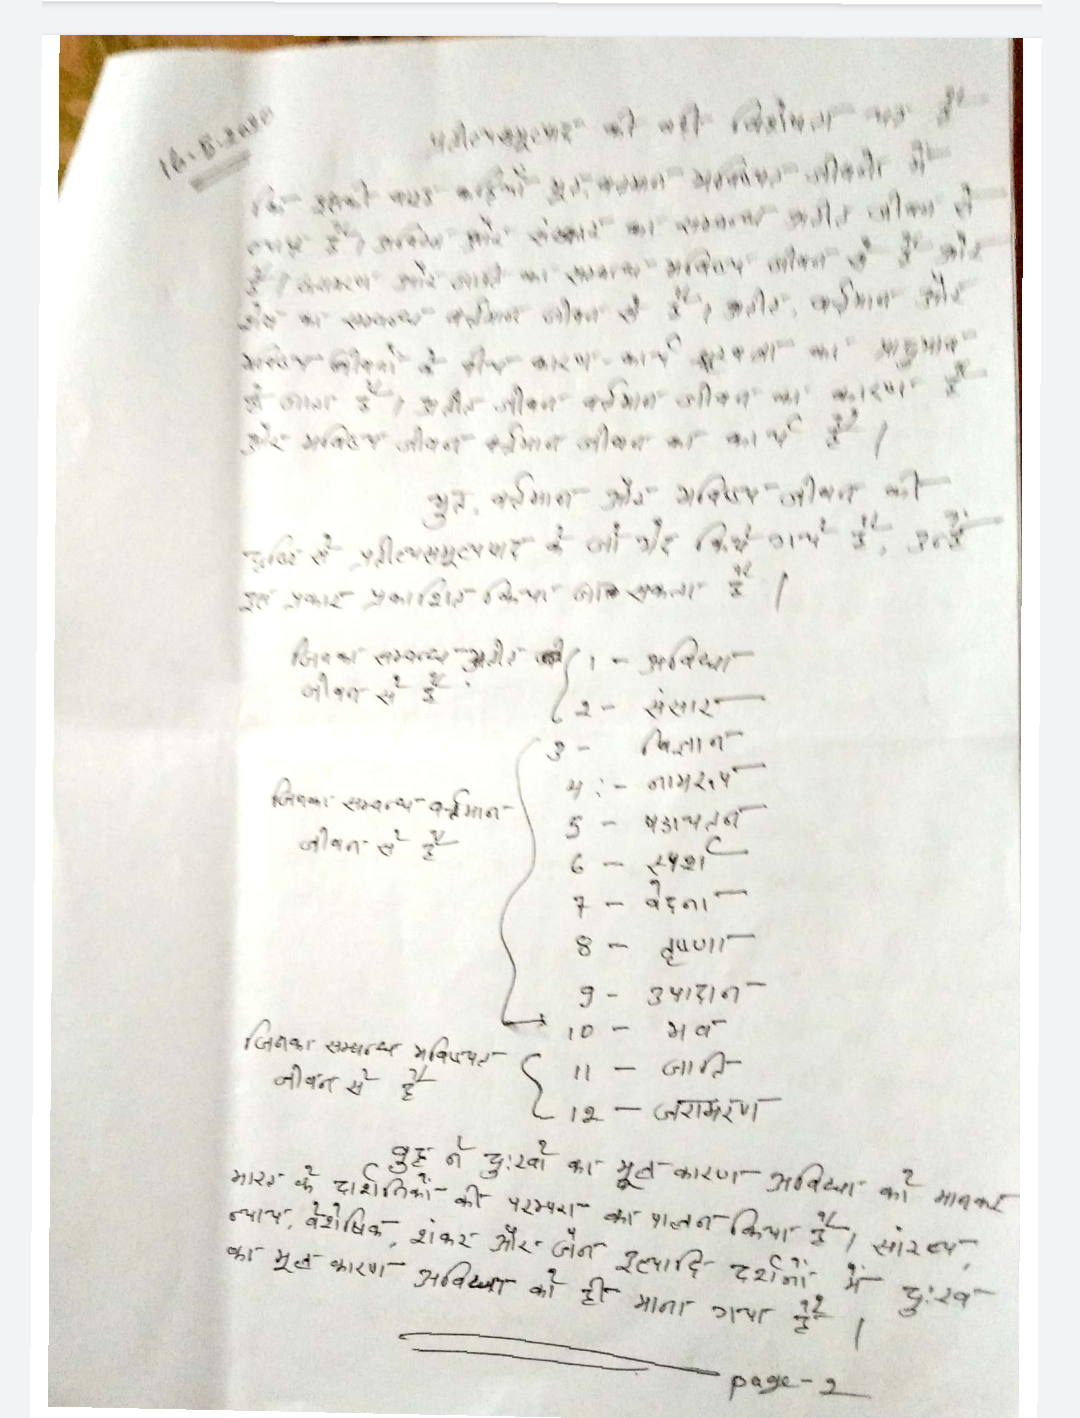 16.5.2020
प्रतीत्यसमुत्पाद की बड़ी विशेषता यह है
कि इसकी बारह कड़ियाँ भूत, वर्तमान भविष्यत जीवनों में
व्याप्त हैं। अविद्या और संस्कार का सम्बन्ध अतीत जीवन से
है। जरामरण और जाति का सम्बन्ध भविष्य जीवन से है और
शेष का सम्बन्ध वर्तमान जीवन से है। अतीत, वर्तमान और
भविष्य जीवनों के बीच कारण-कार्य श्रृंखला का प्रादुर्भाव
हो जाता है। अतीत जीवन वर्तमान जीवन का कारण है
और भविष्य जीवन वर्तमान जीवन का कार्य है।
भूत, वर्तमान और भविष्य जीवन की
दृष्टि से प्रतीत्यसमुत्पाद के जो भेद किये गये हैं, उन्हें
इस प्रकार प्रकाशित किया जा सकता है।
जिनका सम्बन्ध अतीत
जीवन से है
1 - अविद्या
2 - संसार
3 - विज्ञान
4 :- नामरूप
जिनका सम्बन्ध वर्तमान
जीवन से है
5 - षडायतन
6 - स्पर्श
7 - वेदना
8 - तृष्णा
9 - उपादान
10 - भव
जिनका सम्बन्ध भविष्यत
जीवन से है
11 - जाति
12 - जरामरण
बुद्ध ने दुःखों का मूल कारण अविद्या को मानकर
भारत के दार्शनिकों की परम्परा का पालन किया है। सांख्य,
न्याय, वैशेषिक, शंकर और जैन इत्यादि दर्शनों में दुःख
का मूल कारण अविद्या को ही माना गया है।
page-2